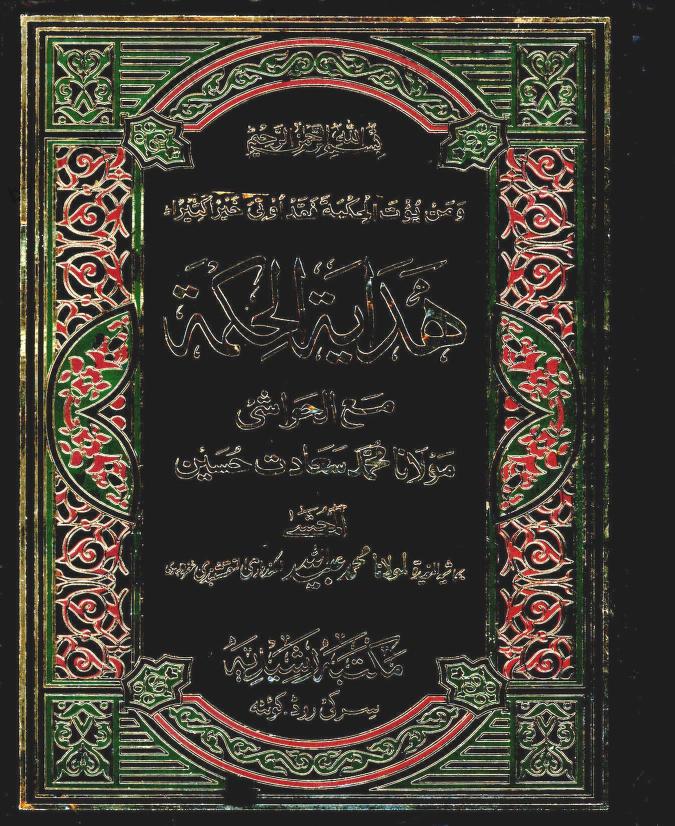 بسم الله الرحمن الرحيم
وَمَنْ يُؤْتَ الْحِكْمَةَ فَقَدْ أُوتِيَ خَيْرًا كَثِيرًا
هَدَايَةُ الْحِكْمَة
مَعَ الْحَوَاشِيْ
مَوْلَانَا مُحَمَّد سَعَادَت حُسَيْن
المحشى
لمولانا محمد عبيد الله
مكتبه رشيديه
سرکی روڈ کوئٹہ